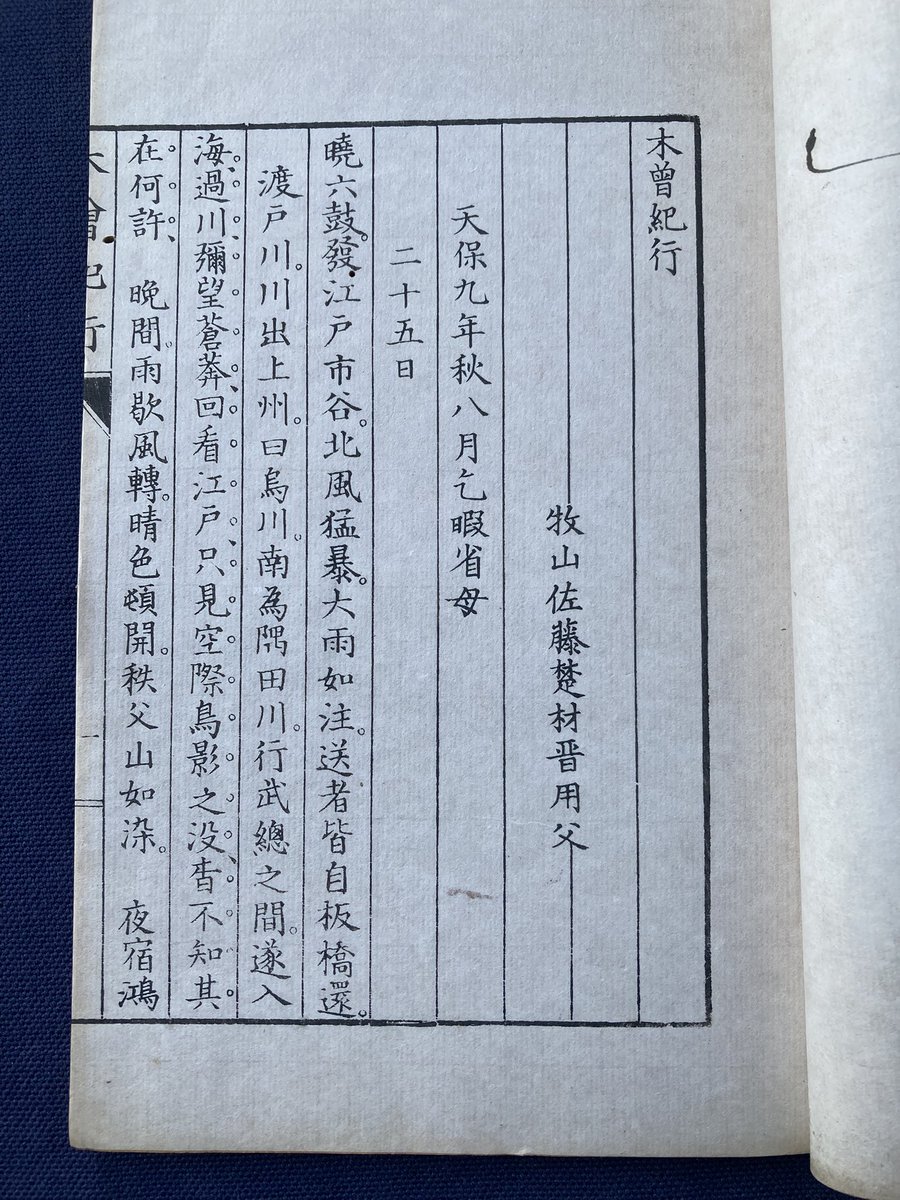 木曾紀行
牧山佐藤楚材晋用父
天保九年秋八月乞暇省母
二十五日
曉六鼓。發江戸市谷。北風猛暴。大雨如注。送者皆自板橋還。
渡戸川。川出上州。曰烏川。南為隅田川。行武總之間。遂入
海、過川彌望蒼莾、回看江戸、只見空際鳥影之没、杳不知其
在何許、 晩間雨歇風轉。晴色頓開。秩父山如染。 夜宿鴻
木曾紀行
一